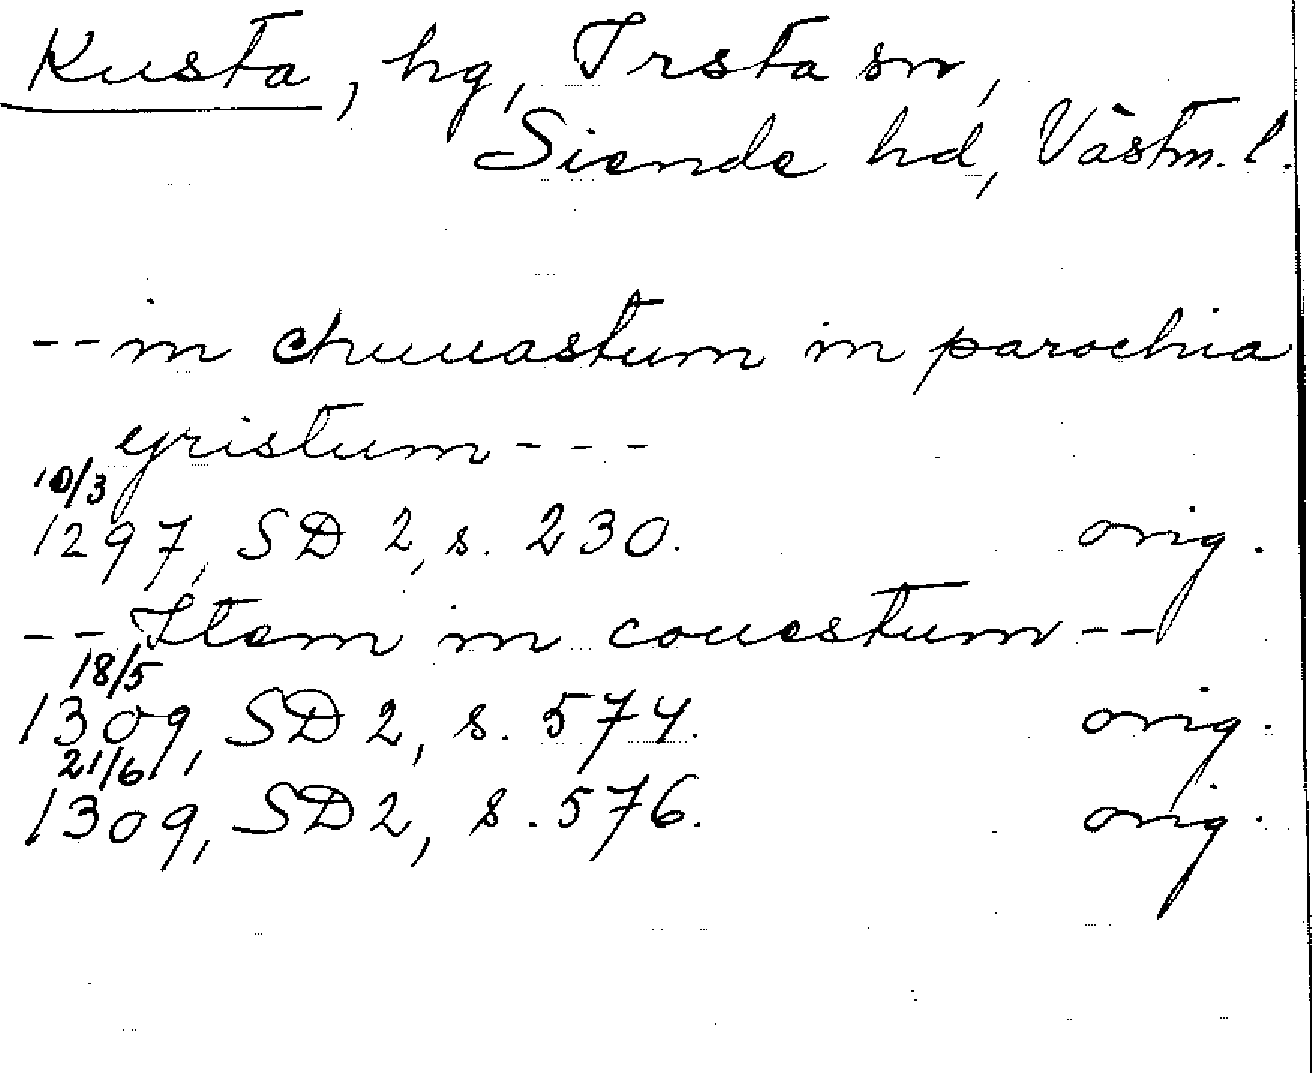 Kusta, hg, Irsta sn,
Siende hd, Västm. l.
-- in chuuastum in parochia
yristum - - -
10/3
1297, SD 2, s. 230. orig.
-- Item in couestum --
18/5
1309, SD 2, s. 574. orig.
21/6
1309, SD 2, s. 576. orig.